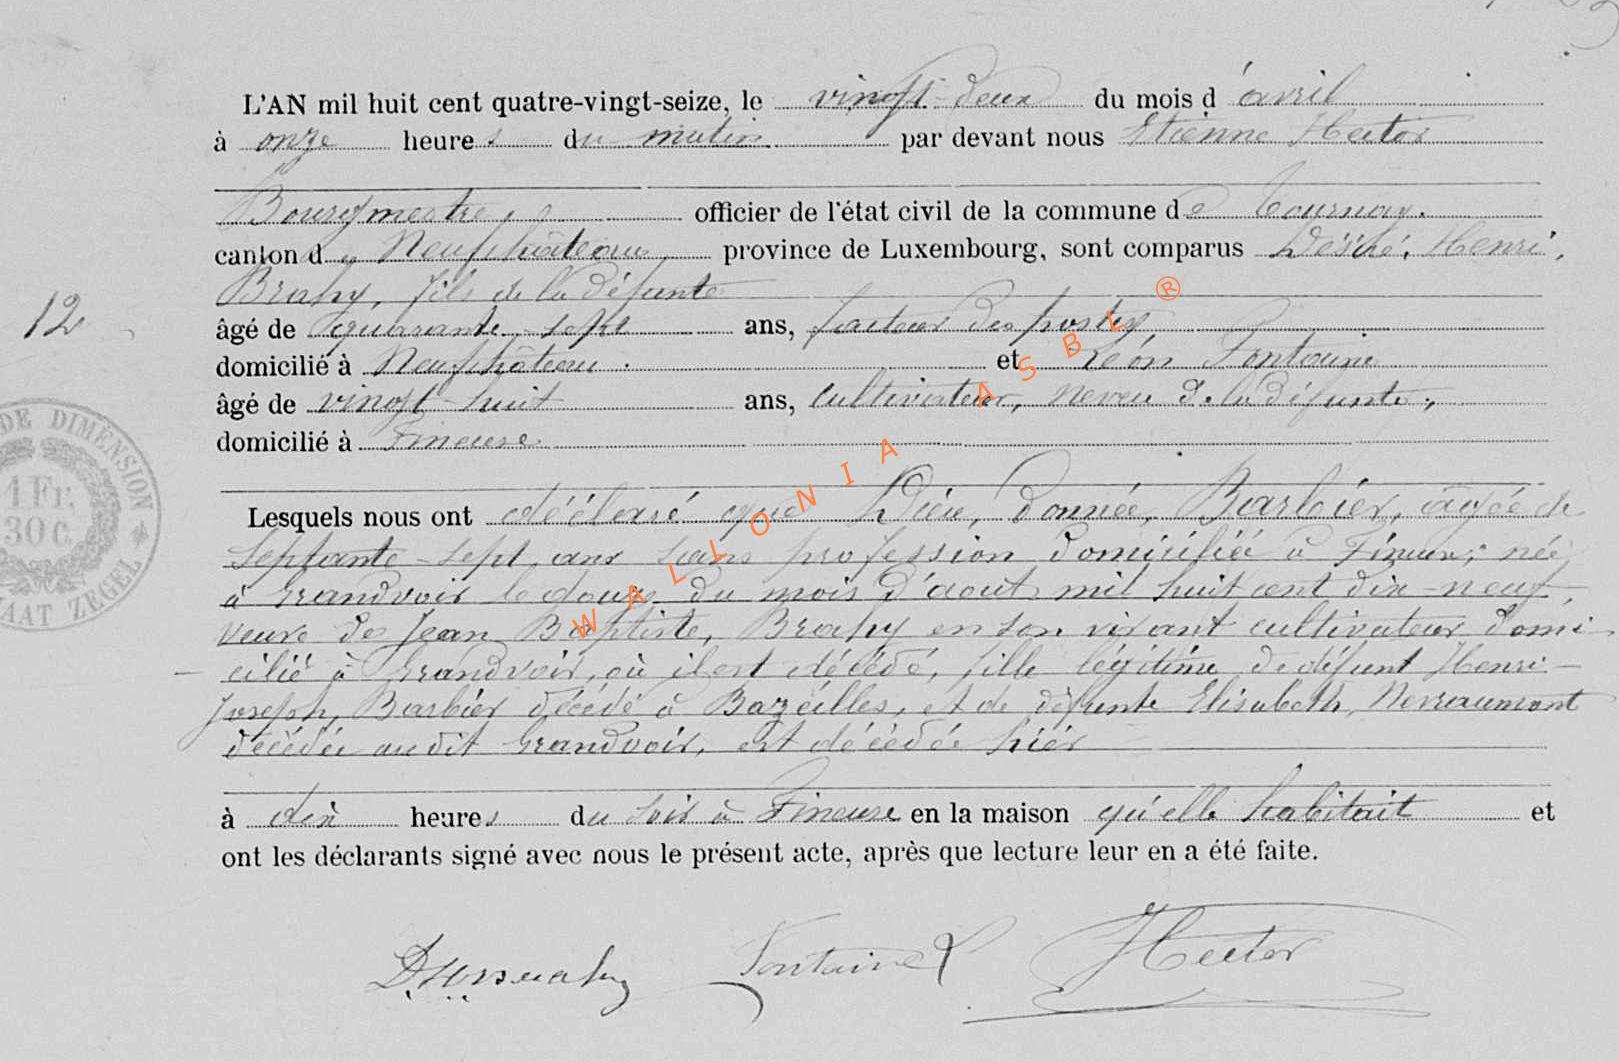 L'AN mil huit cent quatre-vingt-seize, le vingt-deux du mois d'avril
à onze heures du matin par devant nous Etienne Hector
Bourgmestre, officier de l'état civil de la commune de Tournay.
canton de Neufchâteau, province de Luxembourg, sont comparus Désiré, Henri,
Brahy, fils de la défunte
12
âgé de quarante-sept ans, facteur des postes
domicilié à Neufchâteau. et Léon Fontaine
âgé de vingt-huit ans, cultivateur, neveu de la défunte,
domicilié à Fineuse
DE DIMENSION
1 Fr.
30 C.
ZEGEL
Lesquels nous ont déclaré que Dieu, Donnée, Barbiér, âgée de
septante-sept ans sans profession domiciliée à Fineuse; née
à Grandvoir le douze du mois d'aout mil huit cent dix-neuf,
veuve de Jean Baptiste, Brahy en son vivant cultivateur domi
cilié à Grandvoir, où il est décédé, fille légitime de défunt Henri-
Joseph, Barbiér décédé à Bazeilles, et de défunte Elisabeth, Nerraumont
décédée audit Grandvoir, est décédée hiér
à dix heures du soir à Fineuse en la maison qu'elle habitait et
ont les déclarants signé avec nous le présent acte, après que lecture leur en a été faite.
Fontaine Hector
WALLONIA ASBL ®